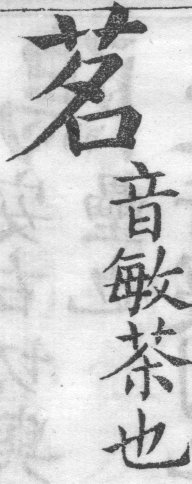 茗
音敏茶也